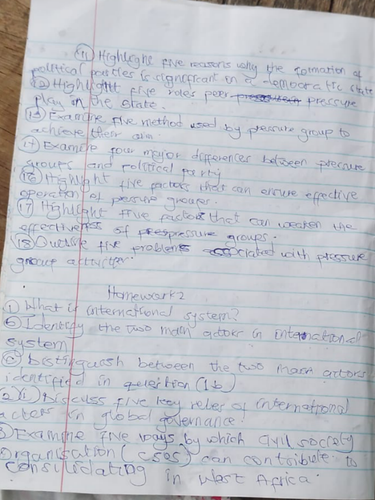 (11) Highlight five reasons why the formation of
political parties is significant in a democratic state
(12) Highlight five roles pressure
play in the state.
(13) Examine five method used by pressure group to
achieve their aim
(14) Examine four major differences between pressure
groups and political party
(16) Highlight five factors that can ensure effective
operation of pressure groups.
(17) Highlight five factors that can weaken the
effectiveness of pressure groups.
(18) Outline five problems associated with pressure
group activities.
Homework 2
(1) What is international system?
(b) Identify the two main actors in international
system
(c) Distinguish between the two main actors
identified in question (1b)
(2)(i) Discuss five key roles of international
actors in global governance.
Examine five ways by which civil society
Organisation (CSES) can contribute to
consulidating in West Africa.